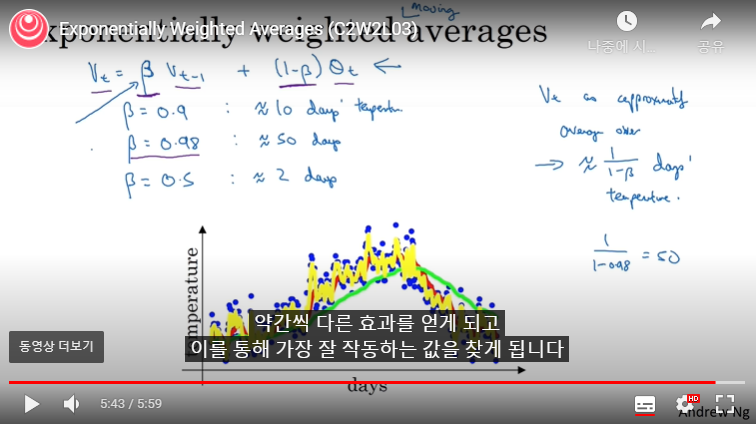 Exponentially Weighted Averages (C2W2L03)
moving
exponentially weighted averages
나중에 시...
공유
Vt = β Vt-1 + (1-β) θt ←
β = 0.9 : ≈ 10 days' temperature
β = 0.98 : ≈ 50 days
β = 0.5 : ≈ 2 days
Vt as approximately
average over
→ ≈ 1/(1-β) days'
temperature.
1/(1-0.98) = 50
temperature
days
약간씩 다른 효과를 얻게 되고
이를 통해 가장 잘 작동하는 값을 찾게 됩니다
동영상 더보기
5:43 / 5:59
HD
Andrew Ng